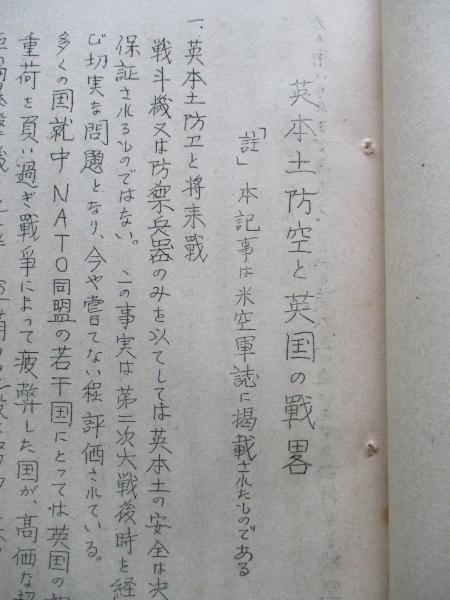 英本土防空と英国の戰畧
「註」本記事は米空軍誌に掲載されたものである
一.英本土防卫と将来戦
戦斗機又は防禦兵器のみを以てしては英本土の安全は決
保証されるものではない。この事実は第二次大戦後時を経
じ切実な問題となり、今や嘗てない程評価されている。
多くの国就中NATO同盟の若干国にとっては英国の
重荷を負い過ぎ戰爭によって疲弊した国が、高価な